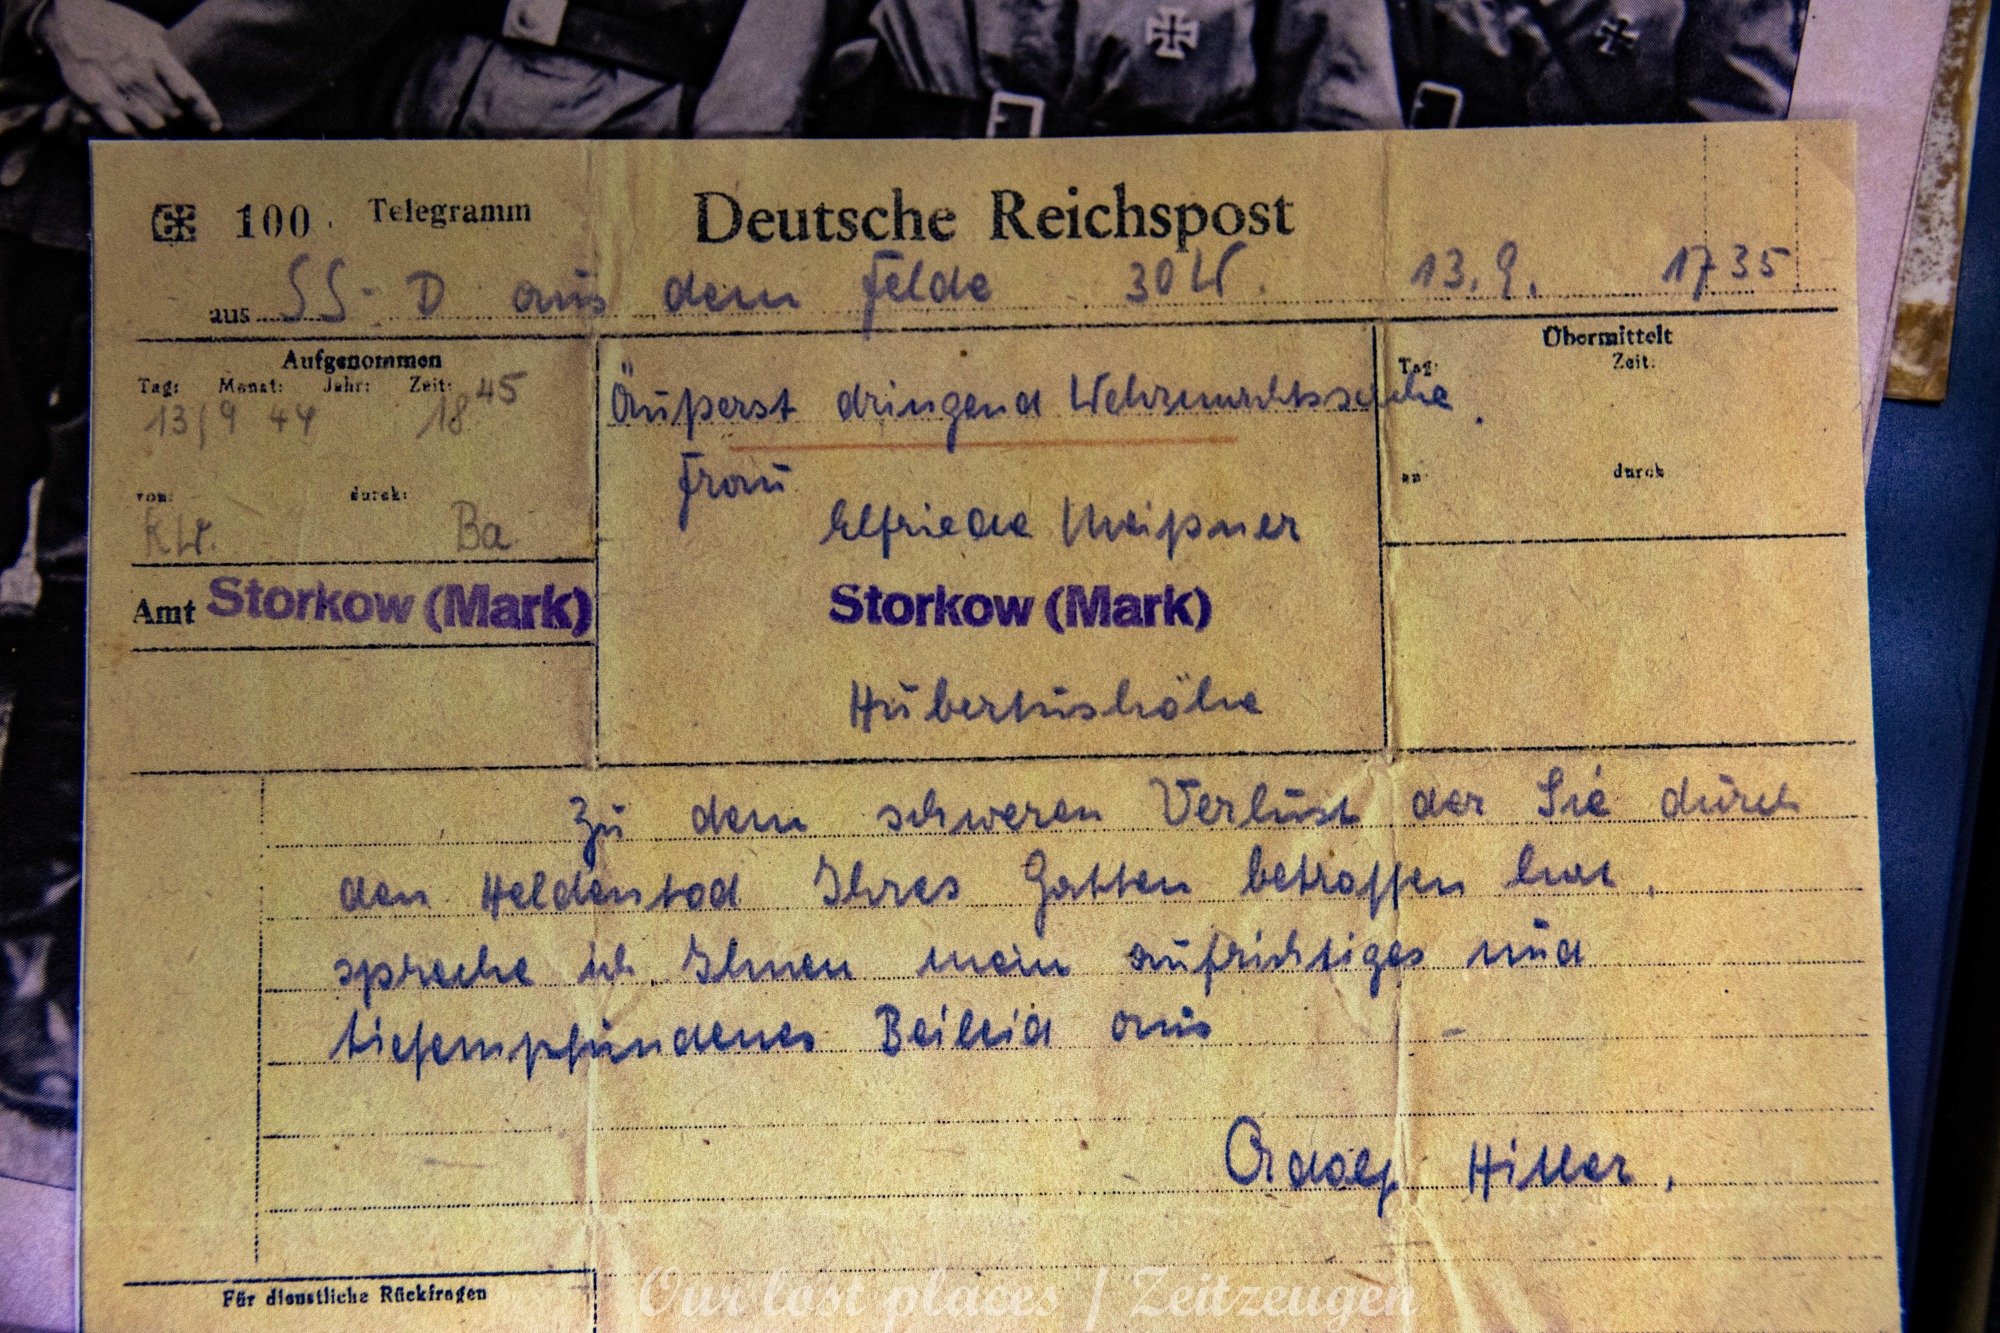 100 Telegramm Deutsche Reichspost
aus SS-D aus dem Felde 30 W. 13. 9. 17 35
Aufgenommen
Tag: Monat: Jahr: Zeit:
13/9 44 18 45
von: durch:
Kw. Ba
Amt Storkow (Mark)
Äußerst dringend Wehrmachtssache.
Frau
Elfriede Meißner
Storkow (Mark)
Hubertushöhe
Übermittelt
Tag: Zeit:
an: durch
Zu dem schweren Verlust der Sie durch
den Heldentod Ihres Gatten betroffen hat,
spreche ich Ihnen mein aufrichtiges und
tiefempfundenes Beileid aus -
Adolf Hitler.
Für dienstliche Rückfragen
Our lost places / Zeitzeugen